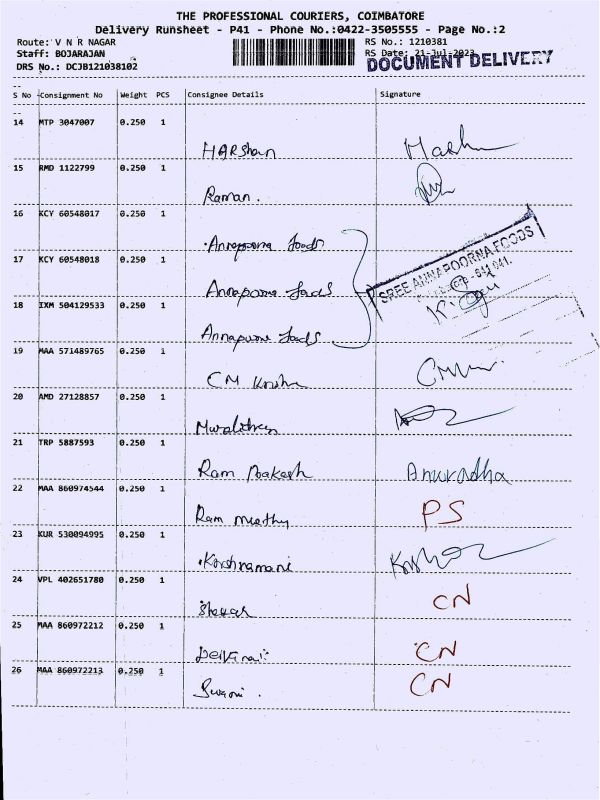 THE PROFESSIONAL COURIERS, COIMBATORE
Delivery Runsheet - P41 - Phone No.:0422-3505555 - Page No.:2
Route: V N R NAGAR RS No.: 1210381
Staff: BOJARAJAN RS Date: 21-Jul-2023
DRS No.: DCJB121038102 DOCUMENT DELIVERY
S No Consignment No Weight PCS Consignee Details Signature
14 MTP 3047007 0.250 1
HARShan Harsh
15 RMD 1122799 0.250 1
Raman.
16 KCY 60548017 0.250 1
Annapoorna foods
17 KCY 60548018 0.250 1
SREE ANNAPOORNA FOODS
Annapoorna foods
18 IXM 504129533 0.250 1
Annapoorna foods
19 MAA 571489765 0.250 1
CM Krishna
20 AMD 27128857 0.250 1
21 TRP 5887593 0.250 1
Ram Prakash Anuradha
22 MAA 860974544 0.250 1
Ram murthy PS
23 KUR 530094995 0.250 1
Krishnamani
24 VPL 402651780 0.250 1
Shekar CN
25 MAA 860972212 0.250 1
CN
26 MAA 860972213 0.250 1
Swami. CN